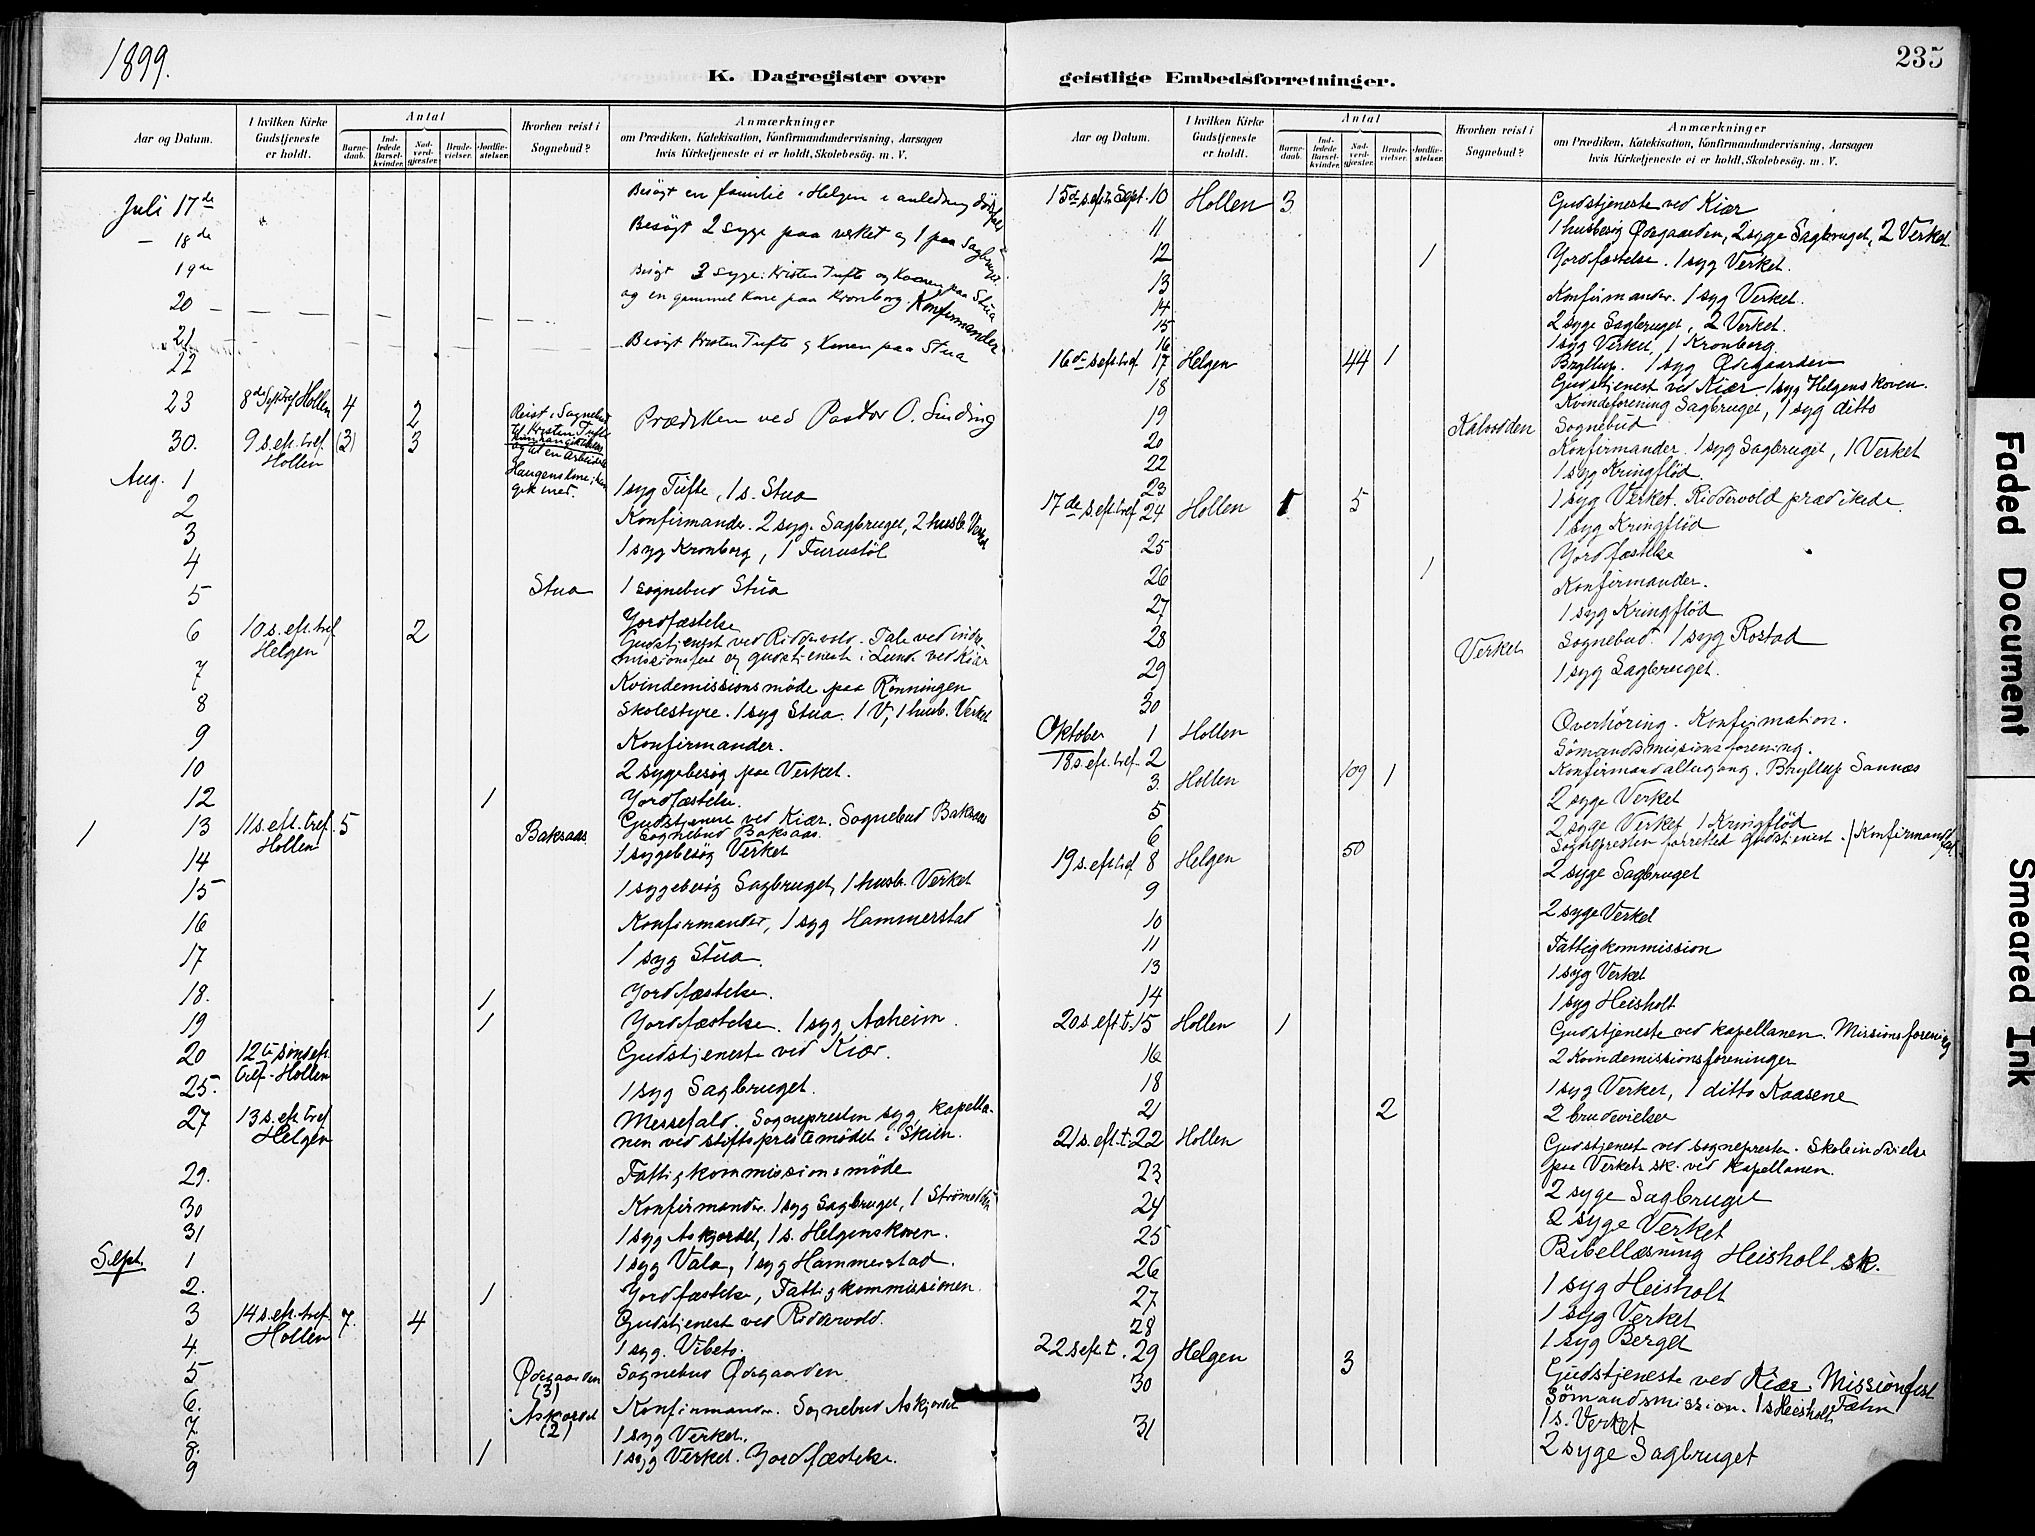 1899.
K. Dagregister over
Aar og Datum.
I hvilken Kirke Gudstjeneste er holdt.
Antal
Barne-daab.
Ind-ledede Barsel-kvinder.
Nad-verd-gjester.
Brude-vielser.
Jordfæ-stelser.
Hvorhen reist i Sognebud?
Anmærkninger
om Prædiken, Katekisation, Konfirmandundervisning, Aarsagen
hvis Kirketjeneste ei er holdt, Skolebesög. m. V.
Juli 17de Besögt en familie i Helgen i anledning dödsfald
– 18de Besögt 2 syge paa verket og 1 paa Sagbruget.
19de Besögt 3 syge: Kristen Tufte og Konen paa Stua
20 og en gammel Kone paa Kronborg. Konfirmander
21 Besögt Kristen Tufte og Konen paa Stua
22
23 8de S eft Tref Hollen 4 2 Reist i Sognebud til Kristen Tufte Prædiken ved Pastor O. Sinding
30. 9 s. eft. tref. Hollen (3) 3 og til en Arbeider
Haugens kone; gik med.
Aug. 1 1 syg Tufte, 1 s. Stua
2 Konfirmander. 2 syg. Sagbruget, 2 husb. Verket
3 1 syg Kronborg, 1 Furustöl
4
5 Stua 1 sognebud Stua
Jordfæstelse
6 10 s. eft. tref Helgen 2 Gudstjenest ved Riddervold. Tale ved indre
missionsfest og gudstjeneste i Lunde ved Kiær
7 Kvindemissionsmöde paa Rönningen
8 Skolestyre. 1 syg Stua. 1 V, 1 husb. Verket
9 Konfirmander.
10 2 sygebesög paa Verket.
12 1 Jordfæstelse.
1 13 11 s. eft. tref. Hollen 5 Baksaas Gudstjeneste ved Kiær. Sognebud Baksaas
Sognebud Baksaas.
14 1 sygebesög Verket
15 1 sygebesög Sagbruget, 1 husb. Verket
16 Konfirmander, 1 syg Hammerstad
17 1 syg Stua.
18. 1 Jordfæstelse.
19 1 Jordfæstelse. 1 syg Aaheim.
20 12te sönd. eft. tref. Hollen Gudstjeneste ved Kiær.
25. 1 syg Sagbruget.
27 13 s. eft. tref Helgen Messefald. Sognepresten syg, kapella-
nen ved stiftsprestemödet i Skien.
29. Fattigkommissionsmöde
30 Konfirmander. 1 syg Sagbruget, 1 Strömodden
31 1 syg Askjordet, 1 s. Helgenskoven.
Sept. 1 1 syg Vala, 1 syg Hammerstad.
2. 1 Jordfæstelse, Fattigkommissionen.
3 14 s. eft. tref. Hollen 7. 4 Gudstjenest ved Riddervold.
4. 1 syg. Vibeto.
5 Ödegaarden (3) Sognebud Ödegaarden
6. Askjordet (2) Konfirmander. Sognebud Askjordet
7 1 syg Verket.
8. 1 1 syg Verket. Jordfæstelse.
9
235
geistlige Embedsforretninger.
Aar og Datum.
I hvilken Kirke Gudstjeneste er holdt.
Antal
Barne-daab.
Ind-ledede Barsel-kvinder.
Nad-verd-gjester.
Brude-vielser.
Jordfæ-stelser.
Hvorhen reist i Sognebud?
Anmærkninger
om Prædiken, Katekisation, Konfirmandundervisning, Aarsagen
hvis Kirketjeneste ei er holdt, Skolebesög. m. V.
15de s. eft. tr Sept. 10 Hollen 3 Gudstjeneste ved Kiær
11 1 husbesög Ödegaarden, 2 syge Sagbruget, 2 Verket.
12 1 Jordfæstelse. 1 syg Verket.
13 Konfirmander. 1 syg Verket.
14 2 syge Sagbruget, 2 Verket.
15 1 syg Verket, 1 Kronborg
16 Bryllup. 1 syg Ödegaarden
16de s eft. tref. 17 Helgen 44 1 Gudstjenest ved Kiær. 1 syg Helgenskoven.
18 Kvindeforening Sagbruget, 1 syg ditto
19 Kalvodden Sognebud
20 Konfirmander. 1 syg Sagbruget, 1 Verket
22 1 syg Kringflöd
23 1 syg Verket. Riddervold prædikede.
17de s. eft. tref 24 Hollen 1 5 1 syg Kringflöd
25 Jordfæstelse
26 1 Konfirmander.
27 1 syg Kringflöd
28 Verket Sognebud. 1 syg Rostad
29 1 syg Sagbruget.
30
Oktober 1 Hollen Overhöring. Konfirmation.
18 s. eft. tref. 2 Sömandsmissionsforening.
3. Hollen 109 1 Konfirmandaltergang. Bryllup Sannæs
2 syge Verket
5 2 syge Verket 1 Kringflöd
6 Sognepresten forretted gudstjenest.
19 s. eft tref. 8 Helgen 50 2 syge Sagbruget
9 2 syge Verket
10 Fattigkommission
11 1 syg Verket
13 1 syg Heisholt
14
20 s. eft t. 15 Hollen 1 Gudstjeneste ved kapellanen. Missionsforening
16 2 Kvindemissionsforeninger
18 1 syg Verket, 1 ditto Kaasene
21 2 2 brudevielser
21 s. eft. t. 22 Hollen Gudstjenest ved sognepresten. Skoleindvielse
paa Verkets sk. ved kapellanen.
23 2 syge Sagbruget
24 2 syge Verket
25 Bibellæsning Heisholt sk.
26 1 syg Heisholt
27 1 syg Verket
28 1 syg Berget
22 s eft. t. 29 Helgen 3 Gudstjeneste ved Kiær. Missionsfest
30 Sömandsmission. 1 s Heisholt
1 s. Verket
31 2 syge Sagbruget
Faded Document
Smeared Ink